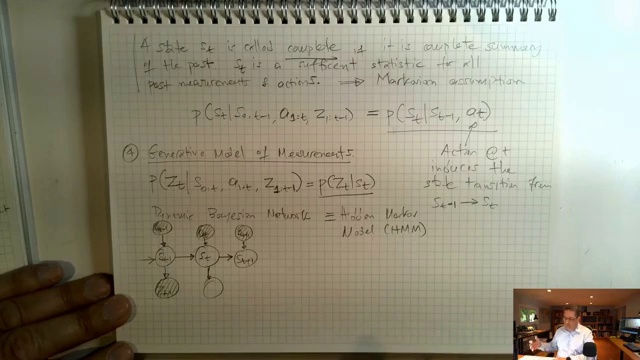 A state St is called complete if it is complete summary
of the past St is a sufficent statistic for all
past measurements & actions. ⟹ Markovian assumption
p(St|S0:t-1, a1:t, Z1:t-1) = p(St|St-1, at)
Action @ t
induces the
state transition from
St-1 → St
④ Generative Model of Measurements
p(Zt|S0:t, a1:t, Z1:t-1) = p(Zt|St)
Dynamic Bayesian Network ≡ Hidden Markov
Model (HMM)
at-1 at at+1
St-1 St St+1
Zt-1